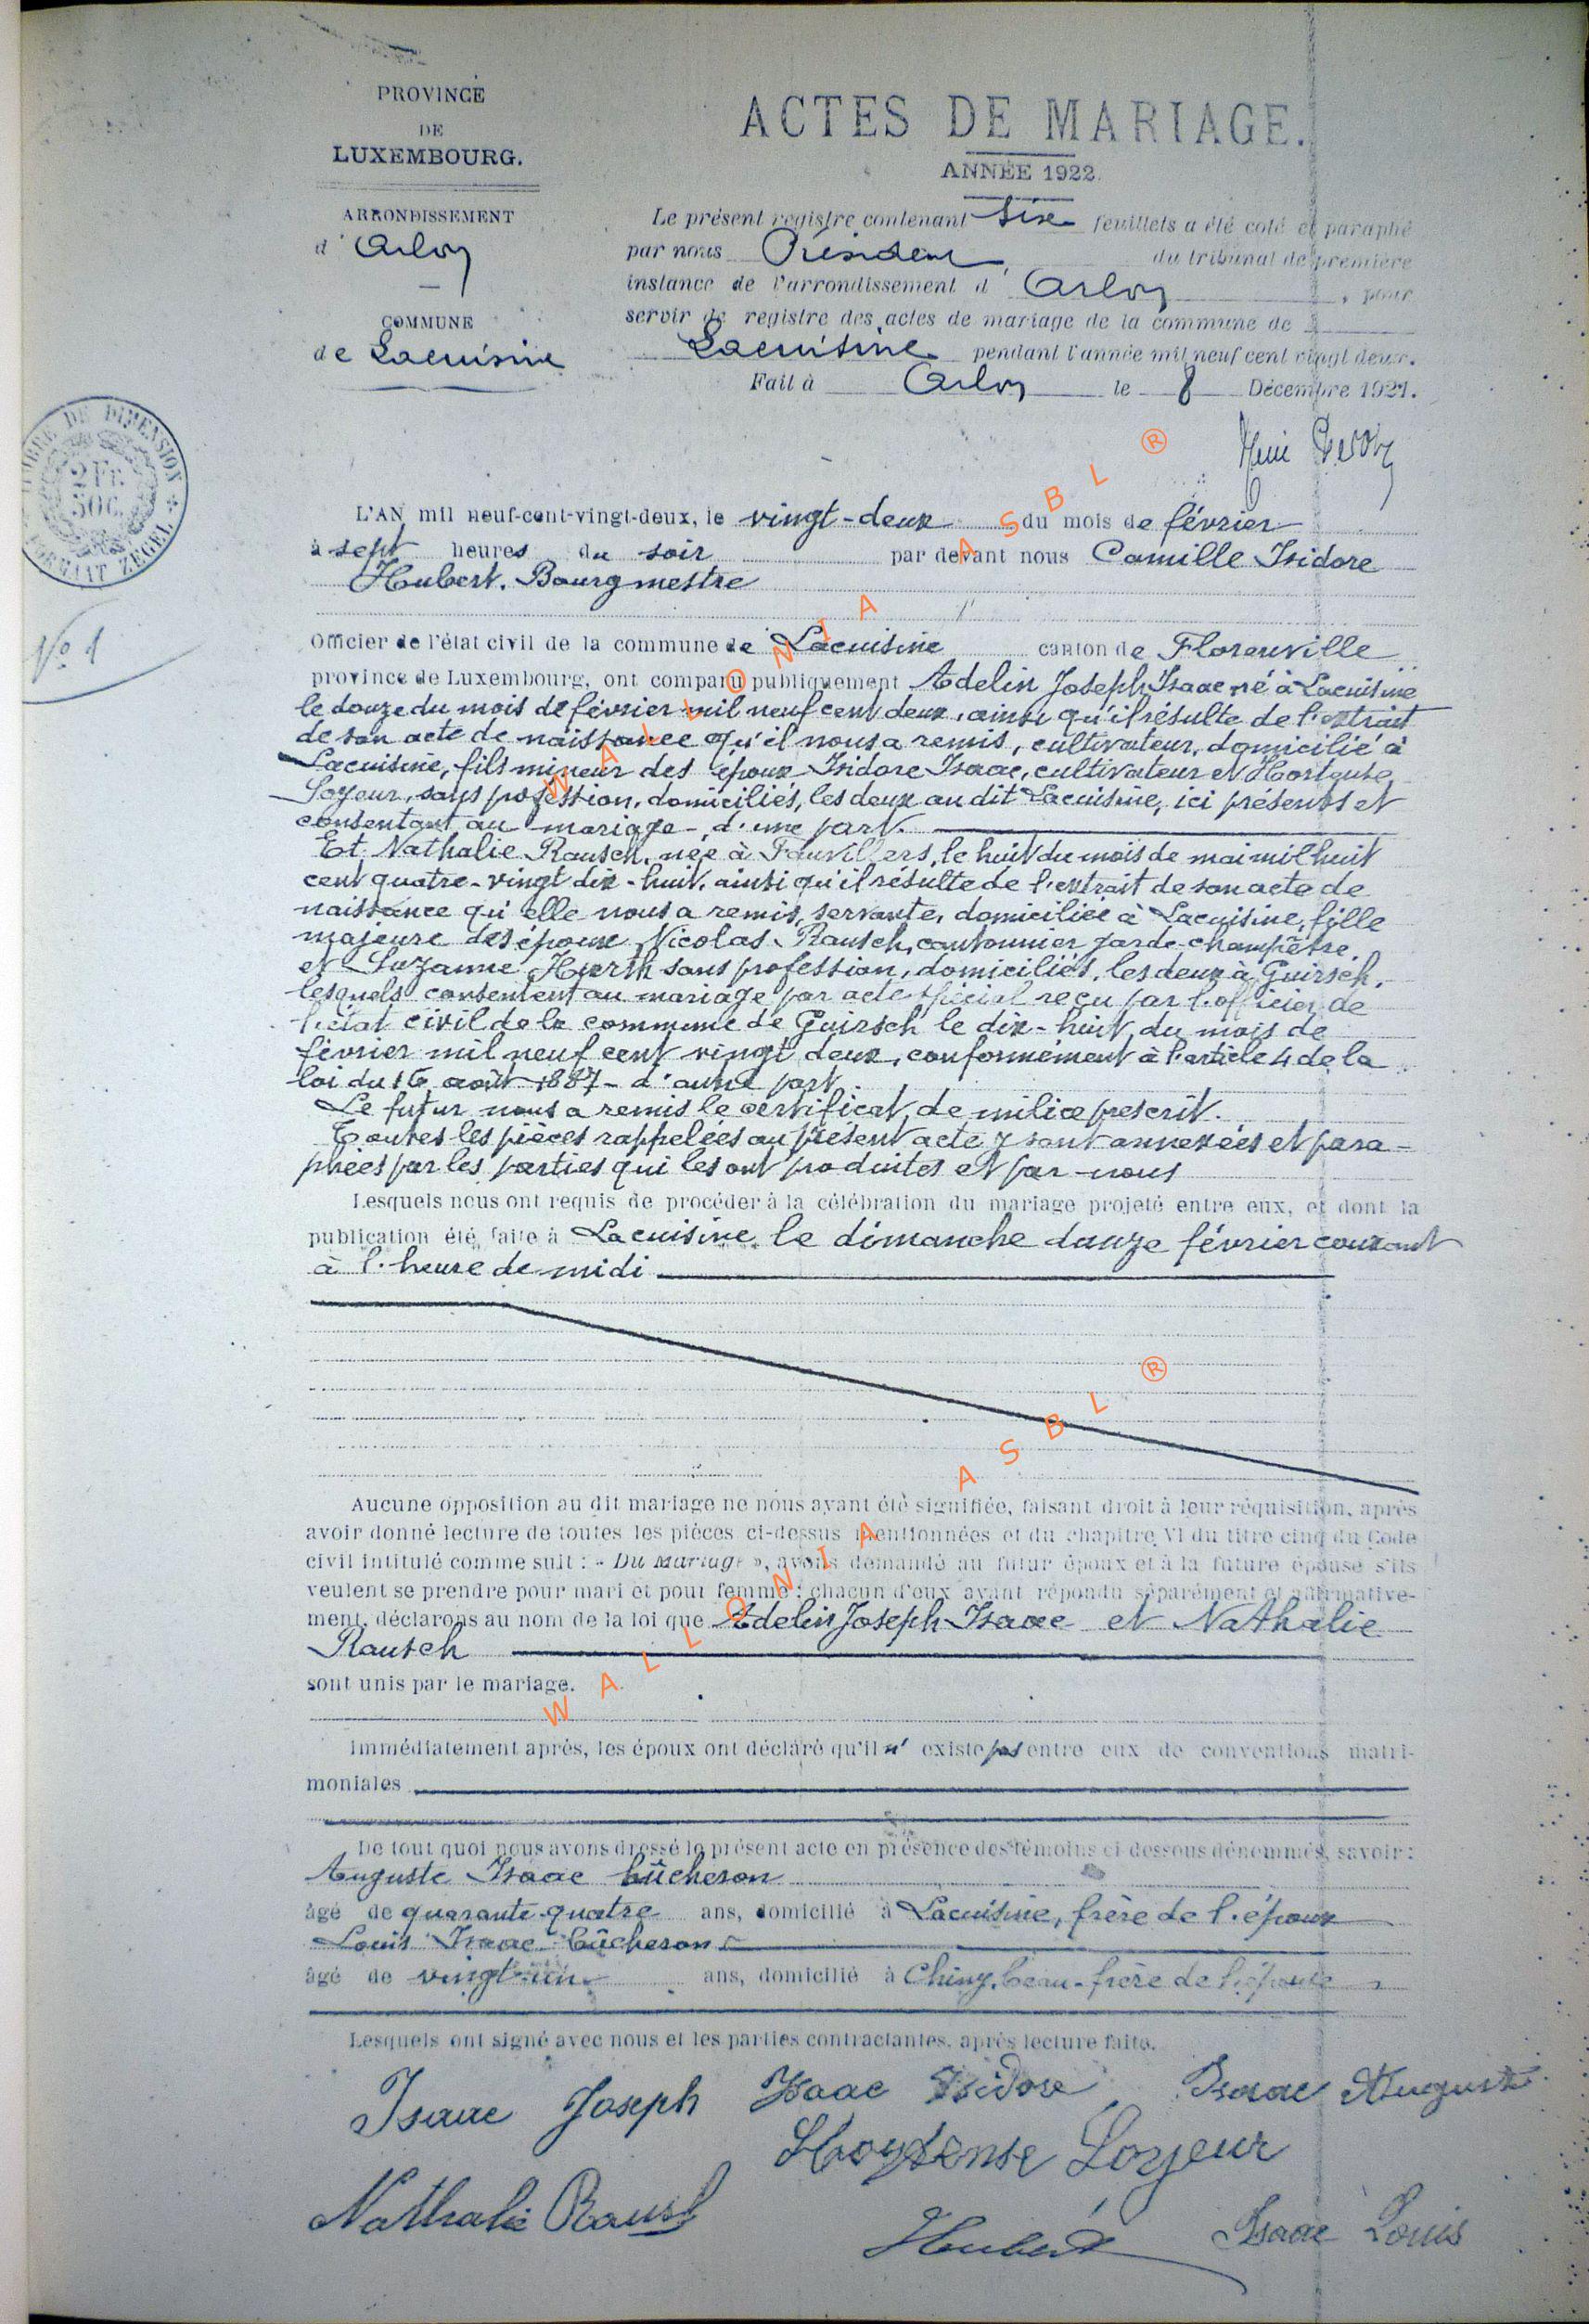 PROVINCE
DE
LUXEMBOURG.
ARRONDISSEMENT
d' Arlon
COMMUNE
de Lacuisine
ACTES DE MARIAGE.
ANNÉE 1922.
Le présent registre contenant six feuillets a été coté et paraphé
par nous Président, du tribunal de première
instance de l'arrondissement d' Arlon, pour
servir de registre des actes de mariage de la commune de
Lacuisine pendant l'année mil neuf cent vingt deux.
Fait à Arlon le 8 Décembre 1921.
TIMBRE DE DIMENSION
2 FR.
50 C.
FORMAAT ZEGEL
No 1
L'AN mil neuf-cent-vingt-deux, le vingt-deux du mois de février
à sept heures du soir par devant nous Camille Isidore
Hubert. Bourgmestre
Officier de l'état civil de la commune de Lacuisine canton de Florenville
province de Luxembourg, ont comparu publiquement Adelin Joseph Isaac né à Lacuisine
le douze du mois de février mil neuf cent deux, ainsi qu'il résulte de l'extrait
de son acte de naissance qu'il nous a remis, cultivateur, domicilié à
Lacuisine, fils mineur des époux Isidore Isaac, cultivateur et Hortense
Loyeur, sans profession, domiciliés, les deux au dit Lacuisine, ici présents et
consentant au mariage - d'une part.
Et Nathalie Rausch, née à Fauvillers, le huit du mois de mai mil huit
cent quatre-vingt dix-huit, ainsi qu'il résulte de l'extrait de son acte de
naissance qu'elle nous a remis, servante, domiciliée à Lacuisine, fille
majeure des époux Nicolas Rausch, cantonnier garde-champêtre,
et Suzanne Hierth sans profession, domiciliés, les deux à Guirsch,
lesquels consentent au mariage par acte spécial reçu par l'officier de
l'état civil de la commune de Guirsch le dix-huit du mois de
février mil neuf cent vingt deux, conformément à l'article 4 de la
loi du 16 août 1887 - d'autre part.
Le futur nous a remis le certificat de milice prescrit.
Toutes les pièces rappelées au présent acte y sont annexées et para-
phées par les parties qui les ont produites et par nous
Lesquels nous ont requis de procéder à la célébration du mariage projeté entre eux, et dont la
publication été faite à Lacuisine le dimanche douze février courant
à l'heure de midi
Aucune opposition au dit mariage ne nous ayant été signifiée, faisant droit à leur réquisition, après
avoir donné lecture de toutes les pièces ci-dessus mentionnées et du chapitre VI du titre cinq du Code
civil intitulé comme suit : « Du Mariage », avons demandé au futur époux et à la future épouse s'ils
veulent se prendre pour mari et pour femme ; chacun d'eux ayant répondu séparément et affirmative-
ment, déclarons au nom de la loi que Adelin Joseph Isaac et Nathalie
Rausch
sont unis par le mariage.
Immédiatement après, les époux ont déclaré qu'il n'existe pas entre eux de conventions matri-
moniales
De tout quoi nous avons dressé le présent acte en présence des témoins ci-dessous dénommés, savoir :
Auguste Isaac bûcheron
âgé de quarante-quatre ans, domicilié à Lacuisine, frère de l'époux
Louis Isaac bûcheron
âgé de vingt-un ans, domicilié à Chiny, beau-frère de l'épouse
Lesquels ont signé avec nous et les parties contractantes, après lecture faite.
Isaac Joseph Isaac Isidore Isaac Auguste
Hortense Loyeur
Nathalie Rausch
Hubert Isaac Louis
WALLONIA ASBL ®
WALLONIA ASBL ®